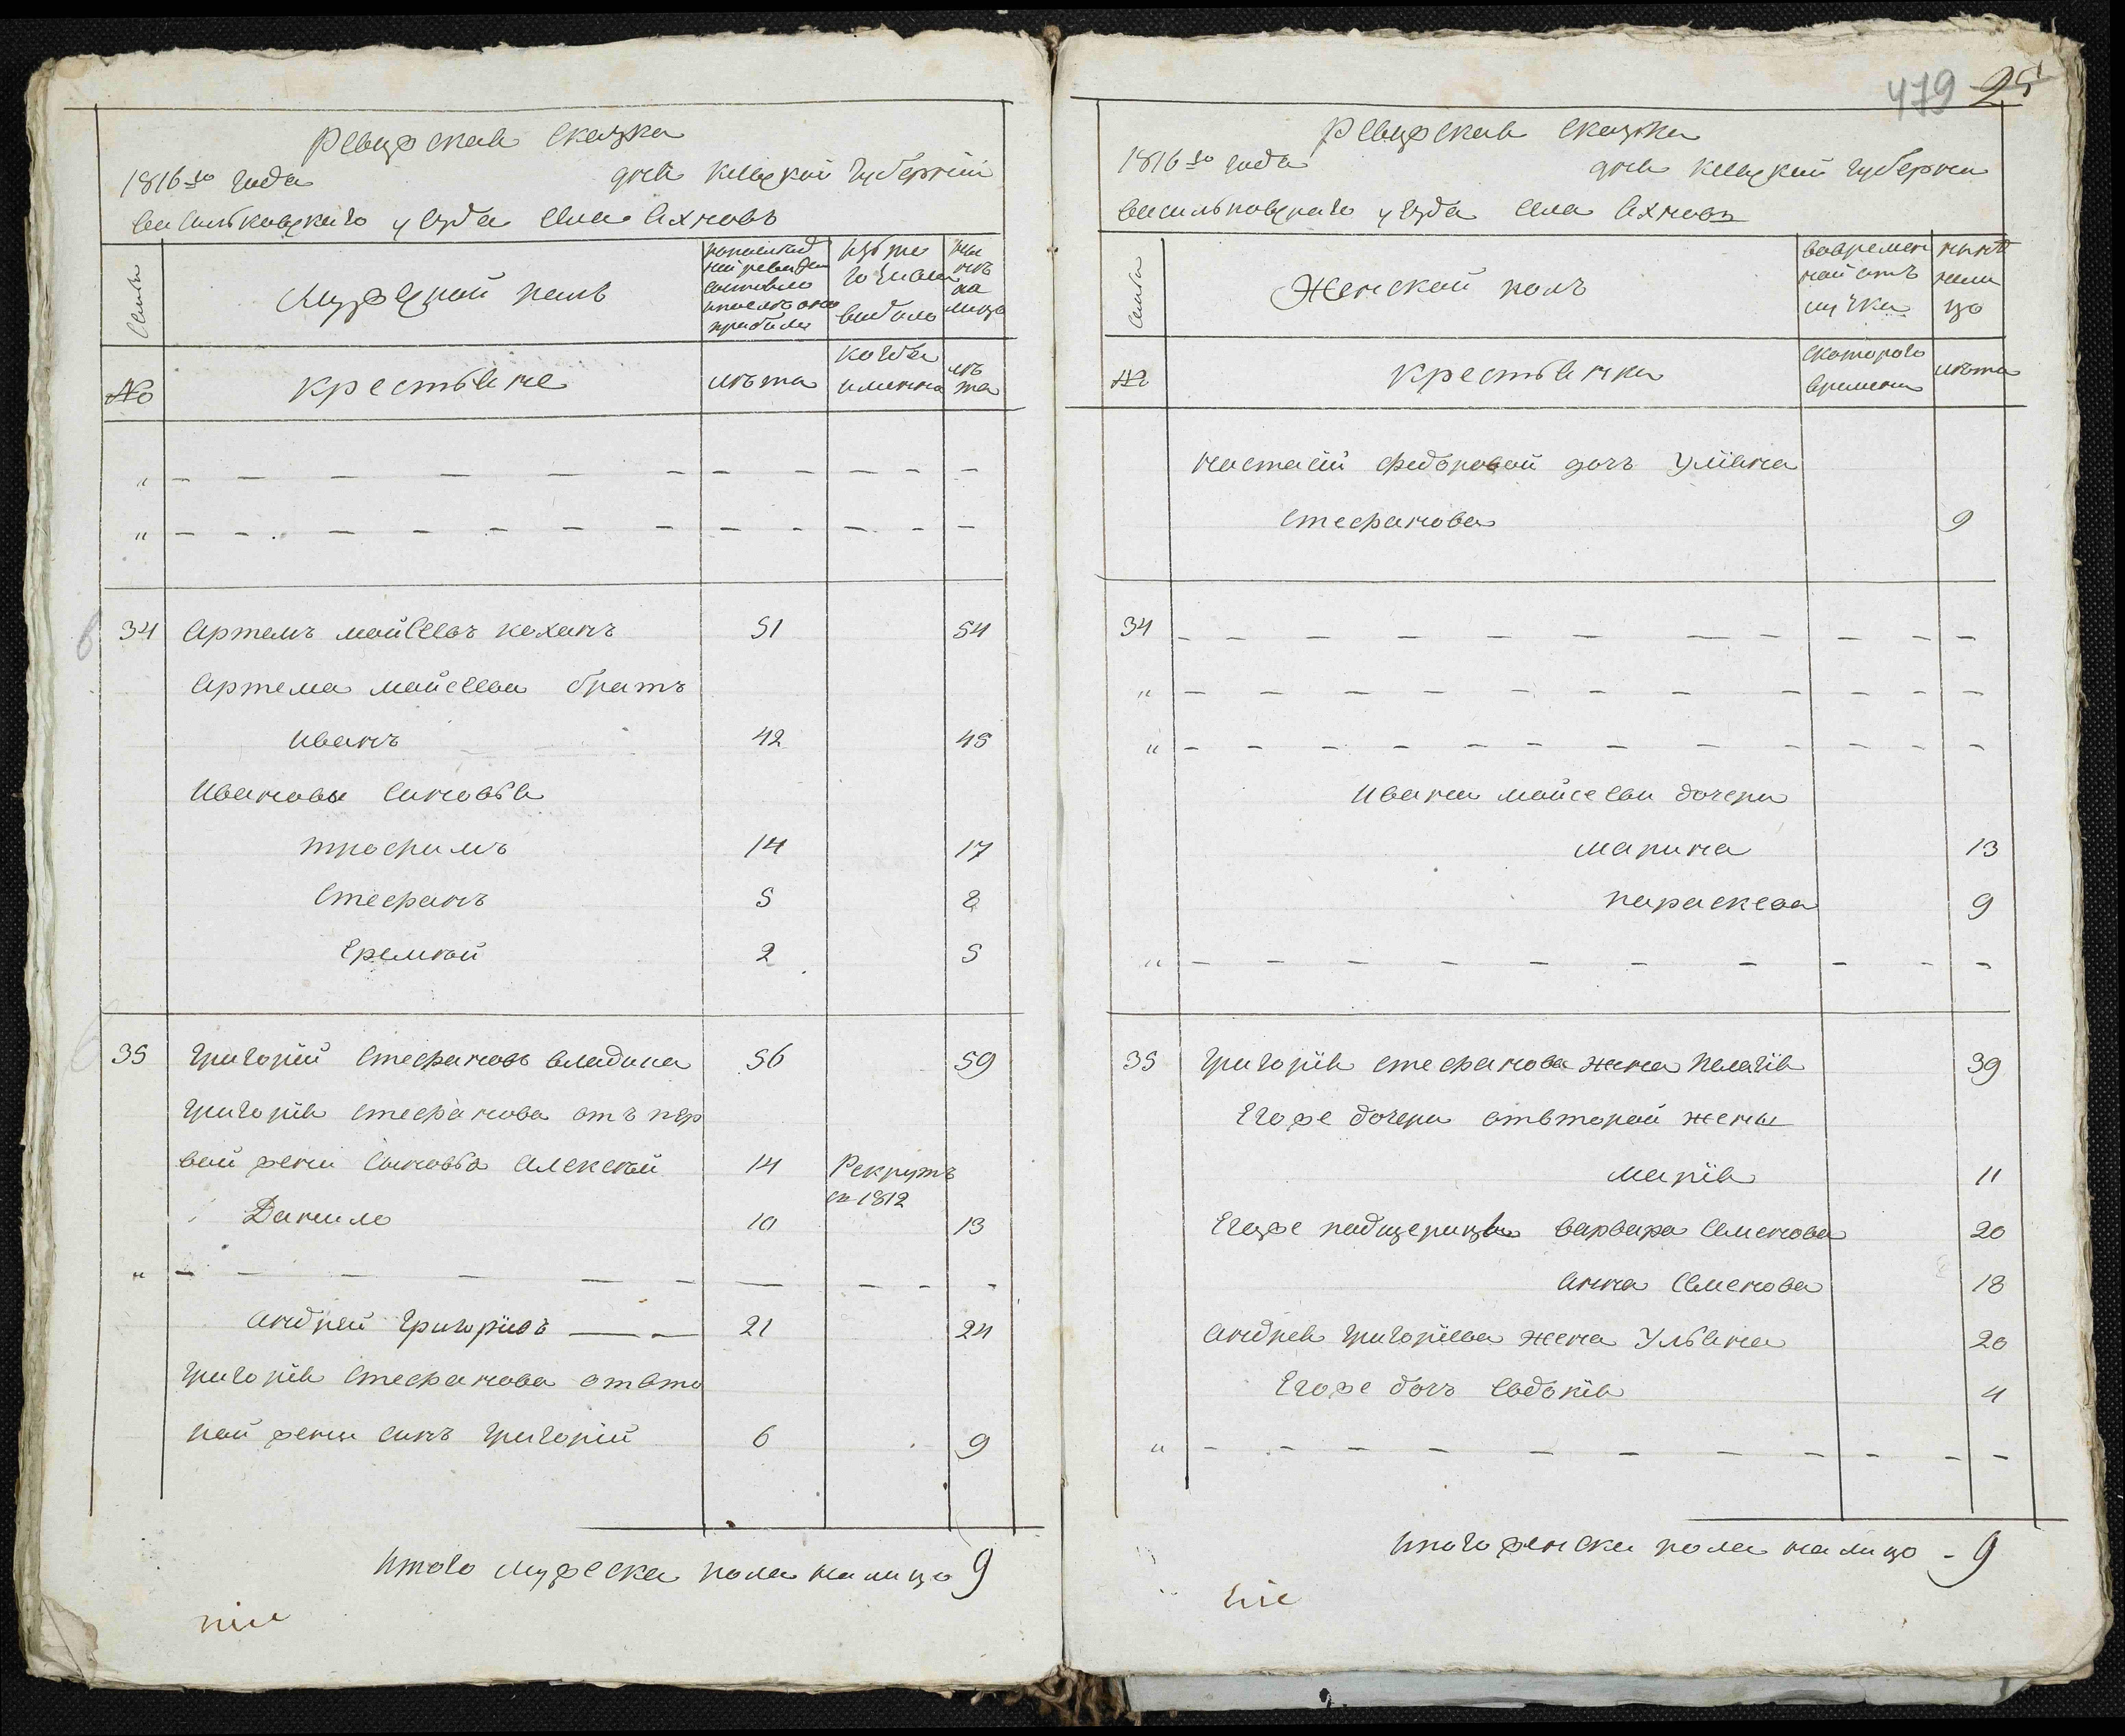 Ревизская сказка
1816го года дня Киевской Губернии
Васильковского уезда села Яхновъ
Семьи
Мужеской полъ
по последней ревизии состояло и после оной прибыло
изъ того числа выбыло
ныне на лицо
№
крестьяне
лета
когда именно
лета
" — — — — — — — — — —
" — — — — — — — — — —
34 Артемъ Мойсеевъ коханъ 51 54
Артема Мойсеева братъ
Иванъ 42 45
Ивановы сыновья
Трофимъ 14 17
Стефанъ 5 8
Еремѣй 2 5
35 Григорий Стефановъ владика 56 59
Григория Стефанова отъ пер
вой жени сыновья Алексѣй 14 Рекрутъ
въ 1812
Данило 10 13
" — — — — — — — — —
Андрей Григориевъ — — 21 24
Григория Стефанова отвто
рой жени сынъ Григорий 6 9
Итого мужеска пола налицо 9
479 25
Ревизская сказка
1816го года дня Киевской Губернии
Васильковского уезда села Яхновъ
Семьи
Женской полъ
во временной отлучки
ныне налицо
№
Крестьянки
с которого времени
лета
Настасии Федоровой дочь Улияна
Стефанова 9
34 — — — — — — — — — —
" — — — — — — — — — —
" — — — — — — — — — —
Ивана Мойсеева дочери
Марина 13
Параскева 9
" — — — — — — — — —
35 Григория Стефанова жена Пелагия 39
Егоже дочери отвторой жены
Мария 11
Егоже падщерицы Варвара Семенова 20
Анна Семенова 18
Андрея Григориева жена Ульяна 20
Егоже дочь Евдокия 4
" — — — — — — — — — —
Итого женска пола налицо - 9